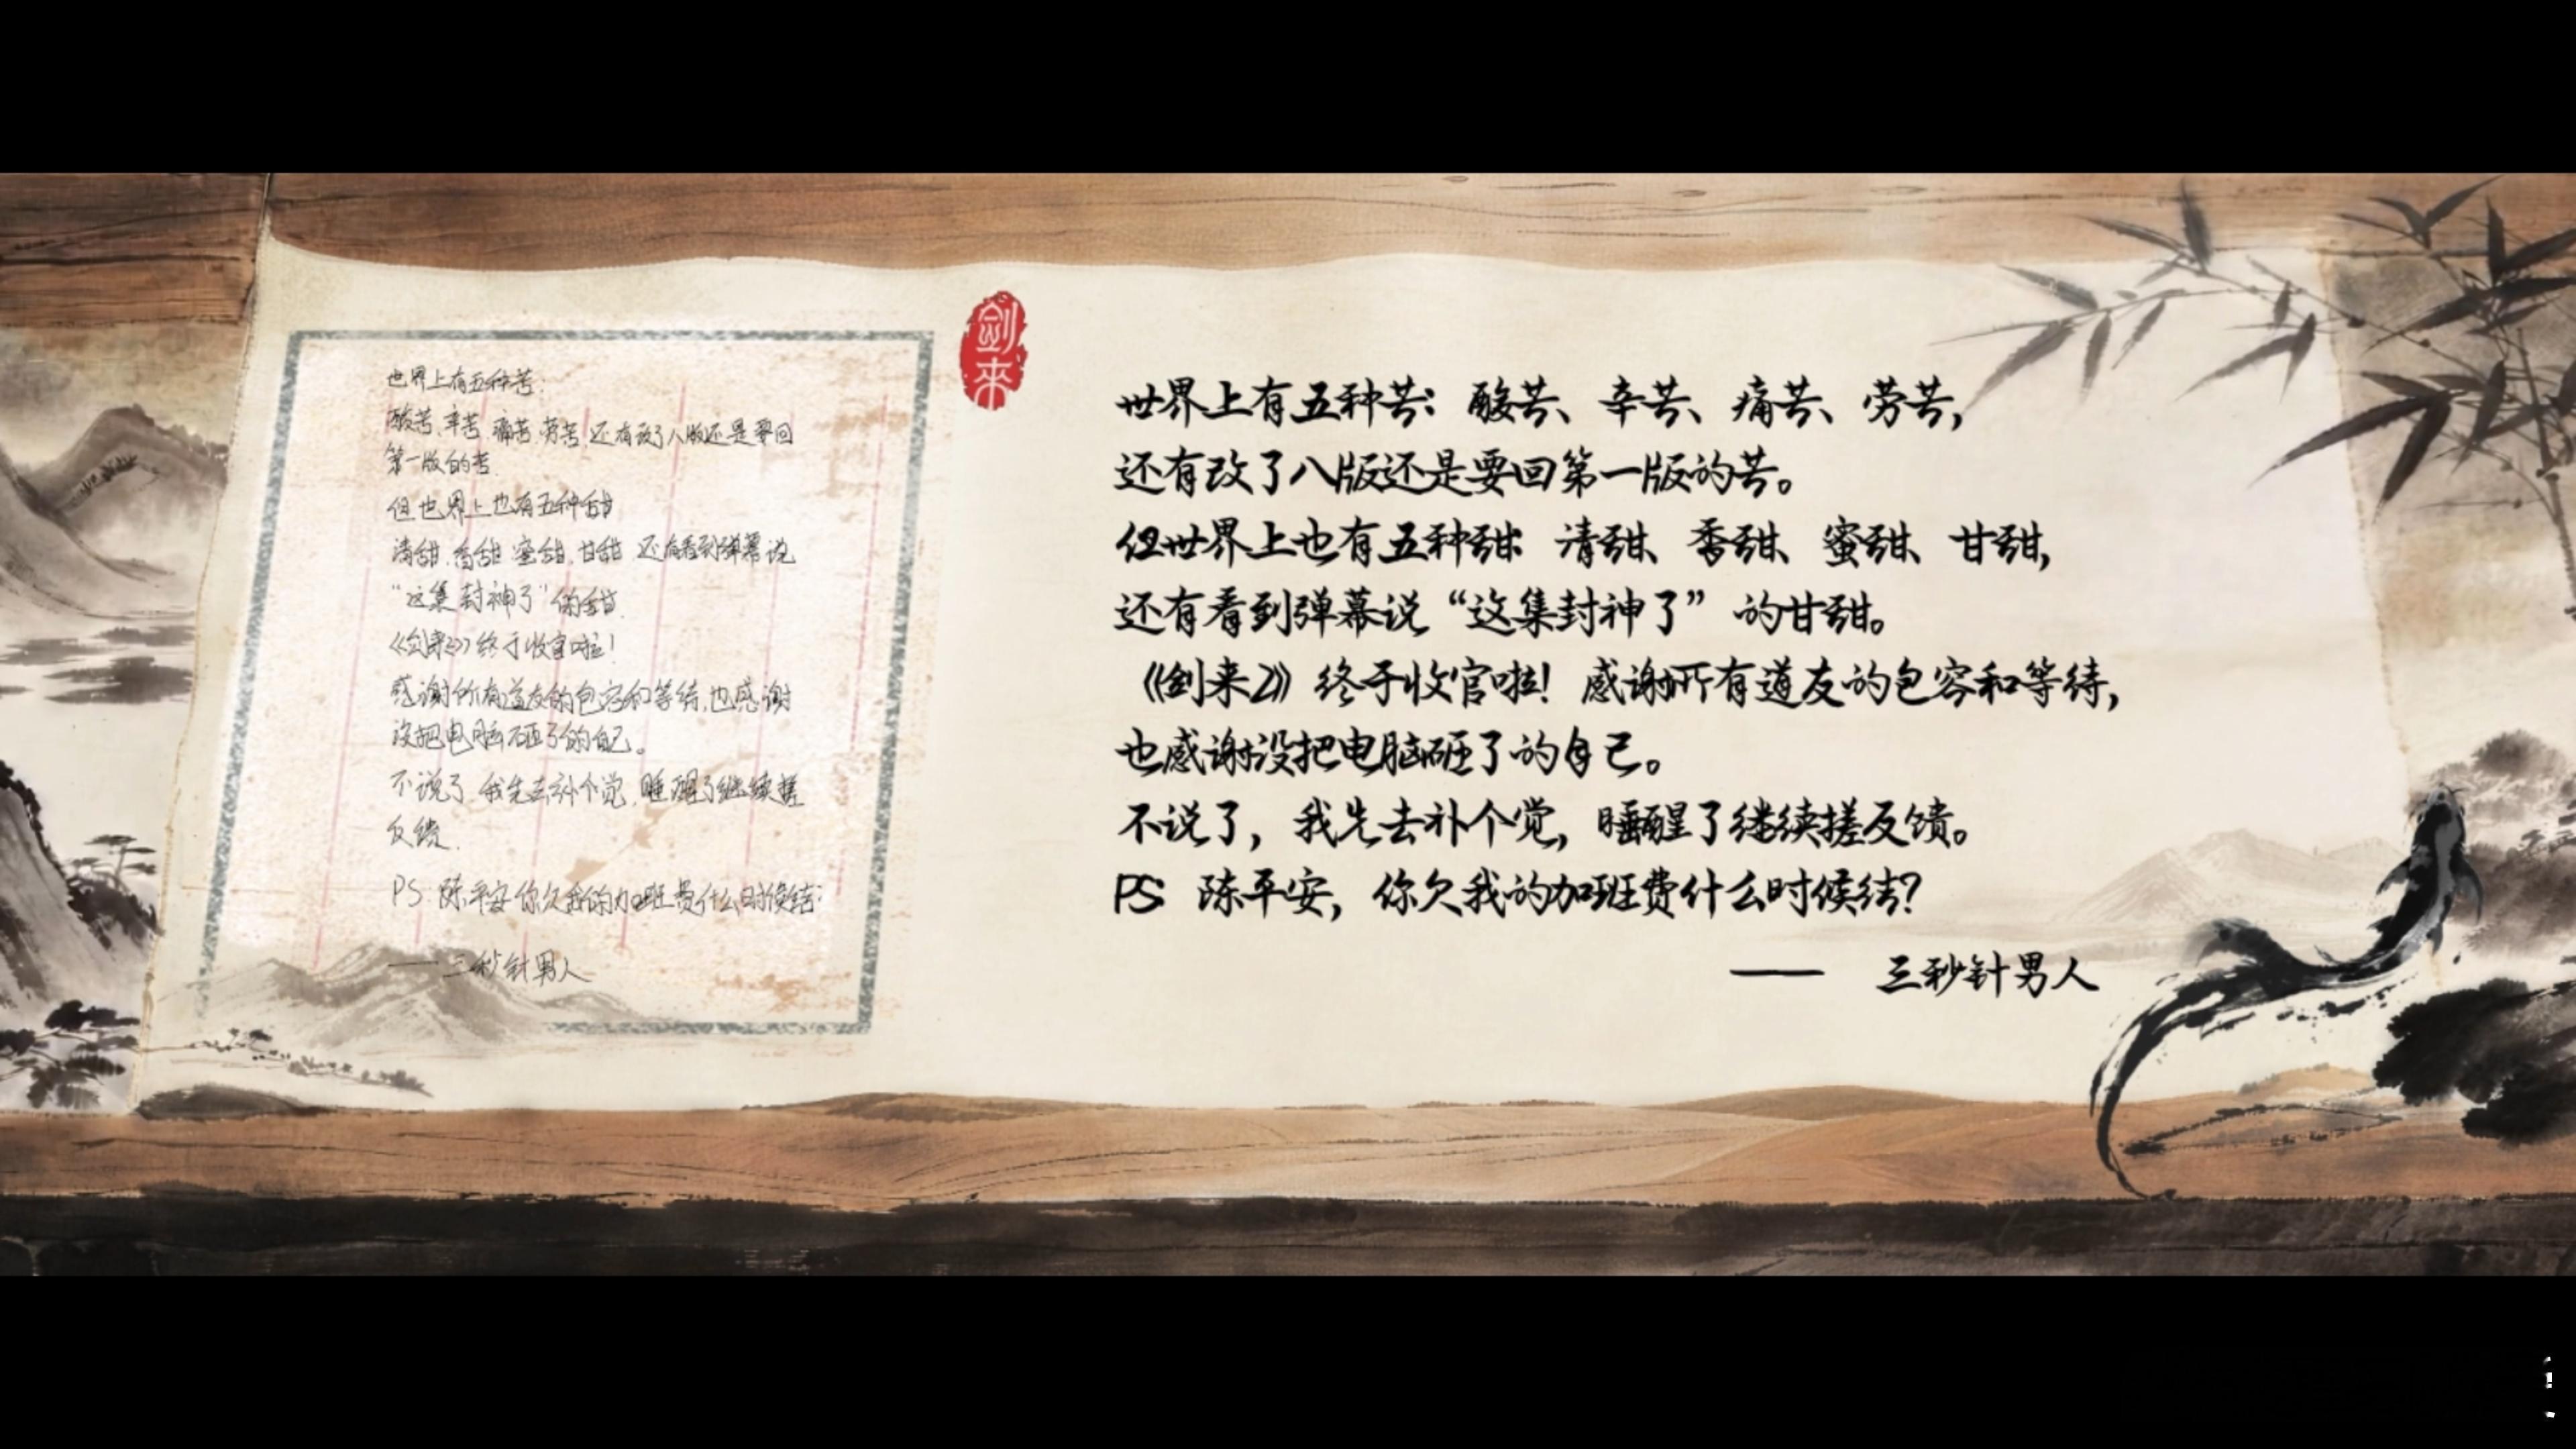 世界上有五种苦.
酸苦、辛苦、痛苦、劳苦, 还有改了八版还是要回
第一版的苦.
但世界上也有五种甜
清甜、香甜、蜜甜、甘甜 还有看到弹幕说
“这集封神了”的甜.
《剑来2》终于收官啦!
感谢所有道友的包容和等待,也感谢
没把电脑砸了的自己。
不说了,我先去补个觉,睡醒了继续搓
反馈.
PS:陈平安你欠我的加班费什么时候结?
——三秒针男人
剑来
世界上有五种苦：酸苦、辛苦、痛苦、劳苦，
还有改了八版还是要回第一版的苦。
但世界上也有五种甜：清甜、香甜、蜜甜、甘甜，
还有看到弹幕说“这集封神了”的甘甜。
《剑来2》终于收官啦！感谢所有道友的包容和等待，
也感谢没把电脑砸了的自己。
不说了，我先去补个觉，睡醒了继续搓反馈。
PS：陈平安，你欠我的加班费什么时候结？
—— 三秒针男人